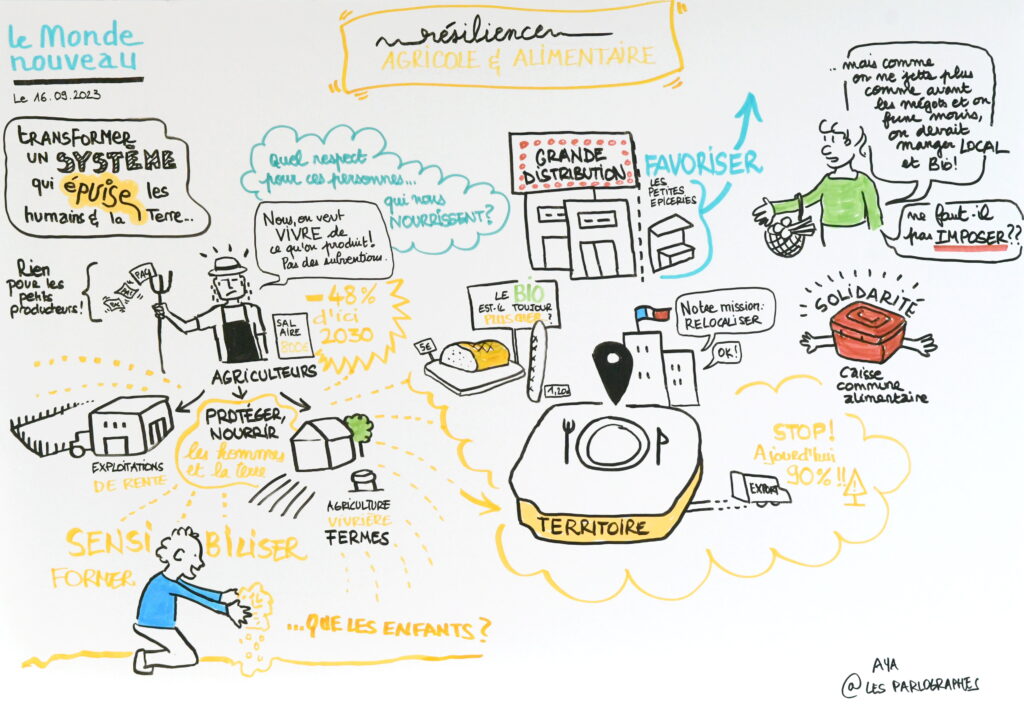 le Monde
nouveau
Le 16.09.2023
résilience
AGRICOLE & ALIMENTAIRE
TRANSFORMER
UN SYSTÈME
qui épuise les
humains & la Terre...
Quel respect
pour ces personnes...
qui nous
NOURRISSENT?
Nous, on veut
VIVRE de
ce qu'on produit!
Pas des subventions.
Rien
pour les
petits
producteurs!
PAC
SAL
AIRE
800€
- 48%
d'ici
2030
AGRICULTEURS
EXPLOITATIONS
DE RENTE
PROTÉGER,
NOURRIR
les hommes
et la terre
AGRICULTURE
VIVRIÈRE
FERMES
SENSIBILISER
FORMER
...QUE LES ENFANTS?
GRANDE
DISTRIBUTION
FAVORISER
LES
PETITES
EPICERIES
LE BIO
EST-IL TOUJOUR
PLUS CHER ?
5€
1,20€
Notre mission:
RELOCALISER
OK!
TERRITOIRE
EXPORT
STOP!
Ajourd'hui
90% !!
...mais comme
on ne jette plus
comme avant
les mégots et on
fume moins,
on devrait
manger LOCAL
et Bio!
ne faut-il
pas IMPOSER??
SOLIDARITÉ
Caisse
commune
alimentaire
AYA
@ LES PARLOGRAPHES